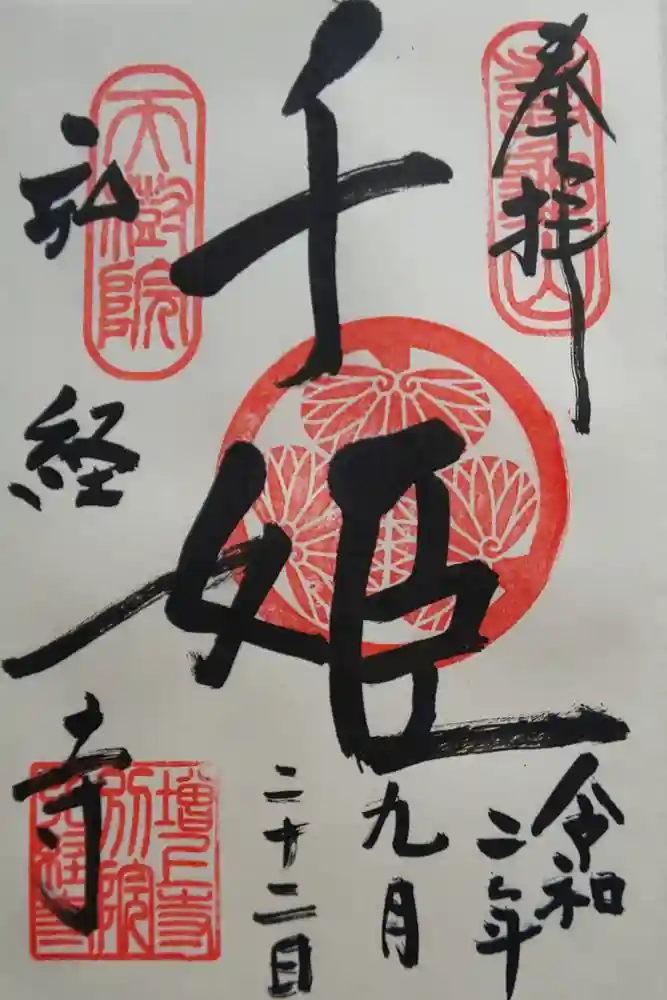 奉拝
千姫
令和
二年
九月
二十二日
弘経寺
天樹院
増上寺
別院